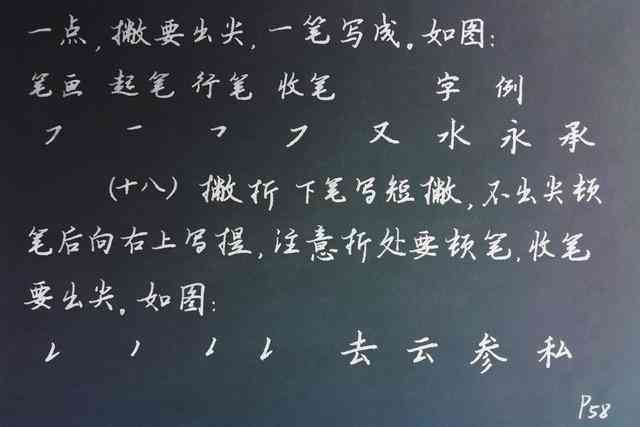 一点,撇要出尖,一笔写成。如图:
笔画 起笔 行笔 收笔 字 例
㇇ 一 ㇇ ㇇ 又 水 永 承
(十八) 撇折 下笔写短撇,不出尖顿
笔后向右上写提,注意折处要顿笔,收笔
要出尖。如图:
去 云 参 私
P58